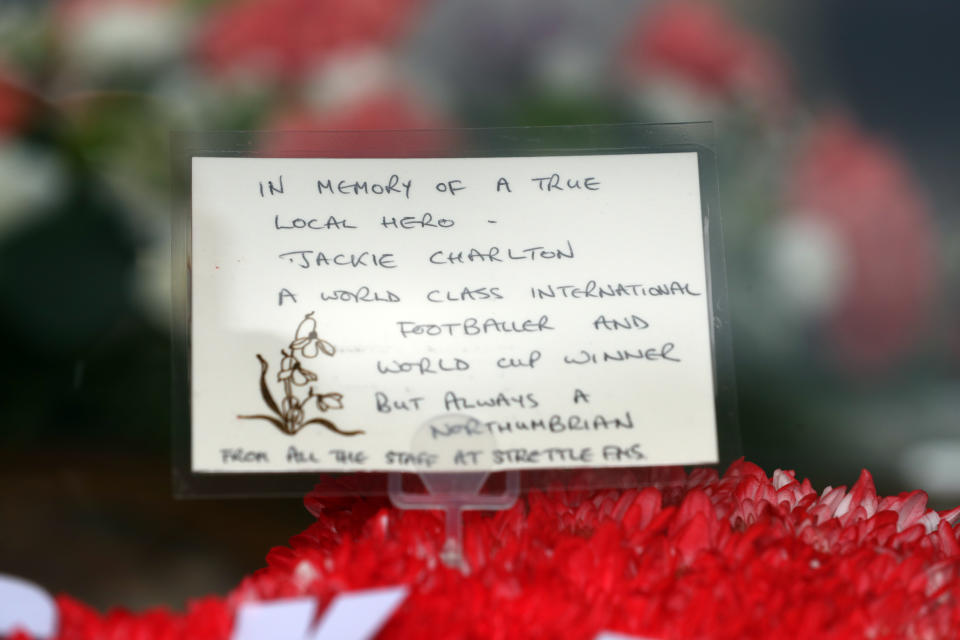 IN MEMORY OF A TRUE
LOCAL HERO -
JACKIE CHARLTON
A WORLD CLASS INTERNATIONAL
FOOTBALLER AND
WORLD CUP WINNER
BUT ALWAYS A
NORTHUMBRIAN
FROM ALL THE STAFF AT